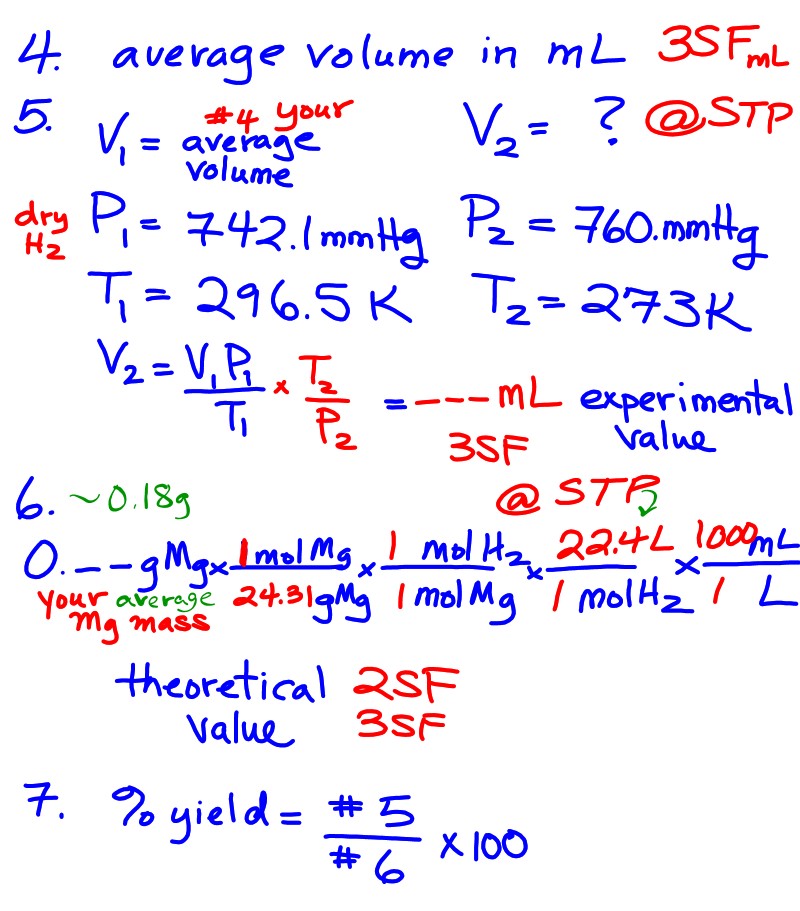 4. average volume in mL 3SF mL
5. V₁ = #4 your average volume V₂ = ? @STP
dry H₂ P₁ = 742.1 mmHg P₂ = 760. mmHg
T₁ = 296.5 K T₂ = 273 K
V₂ = V₁P₁/T₁ × T₂/P₂ = --- mL experimental value
3SF
6. ~0.18g @ STP
0.-- gMg × 1 mol Mg/24.31 gMg × 1 mol H₂/1 mol Mg × 22.4 L/1 mol H₂ × 1000 mL/1 L
your average Mg mass
theoretical value 2SF
3SF
7. % yield = #5/#6 × 100